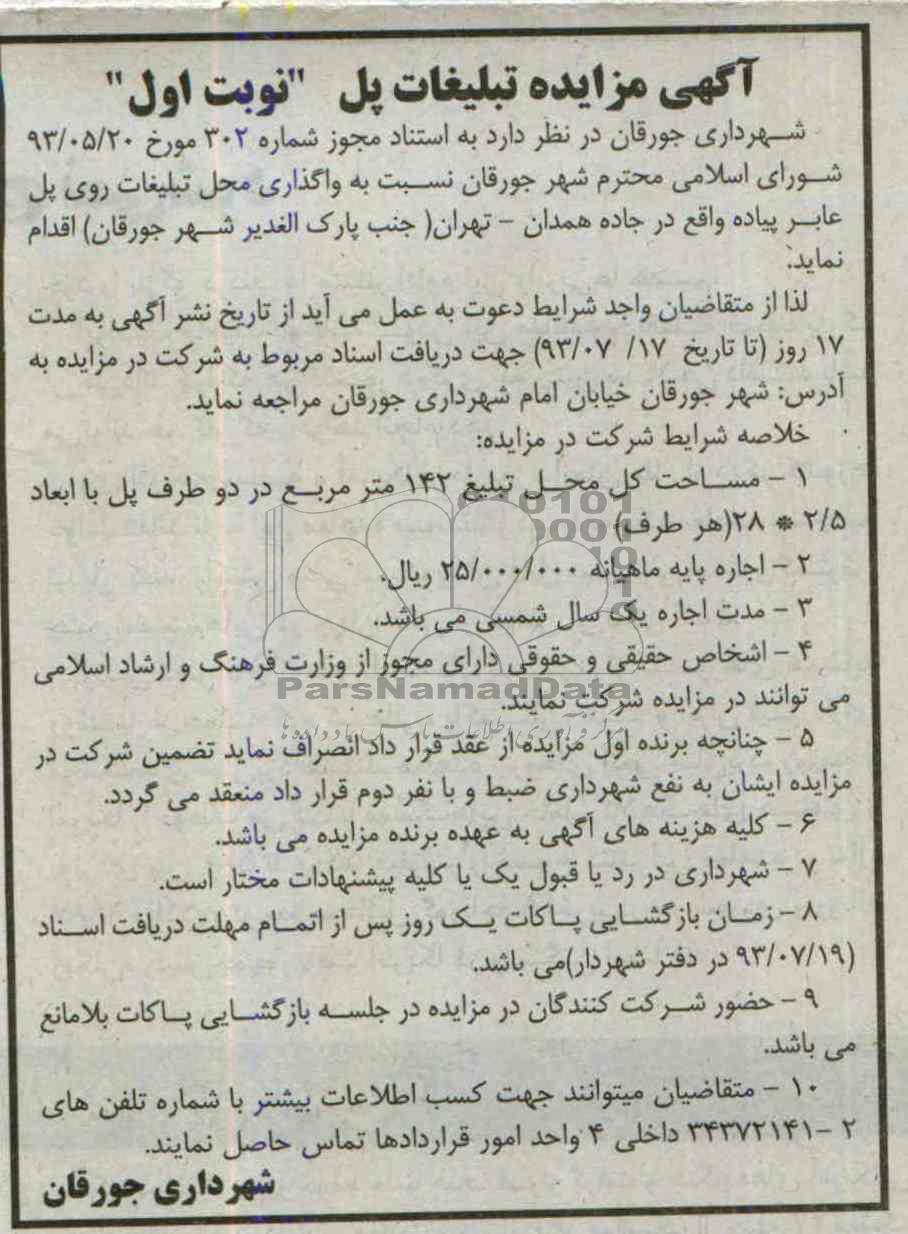 آگهی مزایده تبلیغات پل "نوبت اول"
شهرداری جورقان در نظر دارد به استناد مجوز شماره ۳۰۲ مورخ ۹۳/۰۵/۲۰
شورای اسلامی محترم شهر جورقان نسبت به واگذاری محل تبلیغات روی پل
عابر پیاده واقع در جاده همدان - تهران( جنب پارک الغدیر شهر جورقان) اقدام
نماید.
لذا از متقاضیان واجد شرایط دعوت به عمل می آید از تاریخ نشر آگهی به مدت
۱۷ روز (تا تاریخ ۱۷/ ۹۳/۰۷) جهت دریافت اسناد مربوط به شرکت در مزایده به
آدرس: شهر جورقان خیابان امام شهرداری جورقان مراجعه نماید.
خلاصه شرایط شرکت در مزایده:
۱ - مساحت کل محل تبلیغ ۱۴۲ متر مربع در دو طرف پل با ابعاد
۲/۵ * ۲۸(هر طرف)
۲ - اجاره پایه ماهیانه ۲۵/۰۰۰/۰۰۰ ریال.
۳ - مدت اجاره یک سال شمسی می باشد.
۴ - اشخاص حقیقی و حقوقی دارای مجوز از وزارت فرهنگ و ارشاد اسلامی
می توانند در مزایده شرکت نمایند.
ParsNamadData
۵ - چنانچه برنده اول مزایده از عقد قرار داد انصراف نماید تضمین شرکت در
مزایده ایشان به نفع شهرداری ضبط و با نفر دوم قرار داد منعقد می گردد.
۶ - کلیه هزینه های آگهی به عهده برنده مزایده می باشد.
۷ - شهرداری در رد یا قبول یک یا کلیه پیشنهادات مختار است.
۸ - زمان بازگشایی پاکات یک روز پس از اتمام مهلت دریافت اسناد
(۹۳/۰۷/۱۹ در دفتر شهردار)می باشد.
۹ - حضور شرکت کنندگان در مزایده در جلسه بازگشایی پاکات بلامانع
می باشد.
۱۰ - متقاضیان میتوانند جهت کسب اطلاعات بیشتر با شماره تلفن های
۲ -۳۴۳۷۲۱۴۱ داخلی ۴ واحد امور قراردادها تماس حاصل نمایند.
شهرداری جورقان